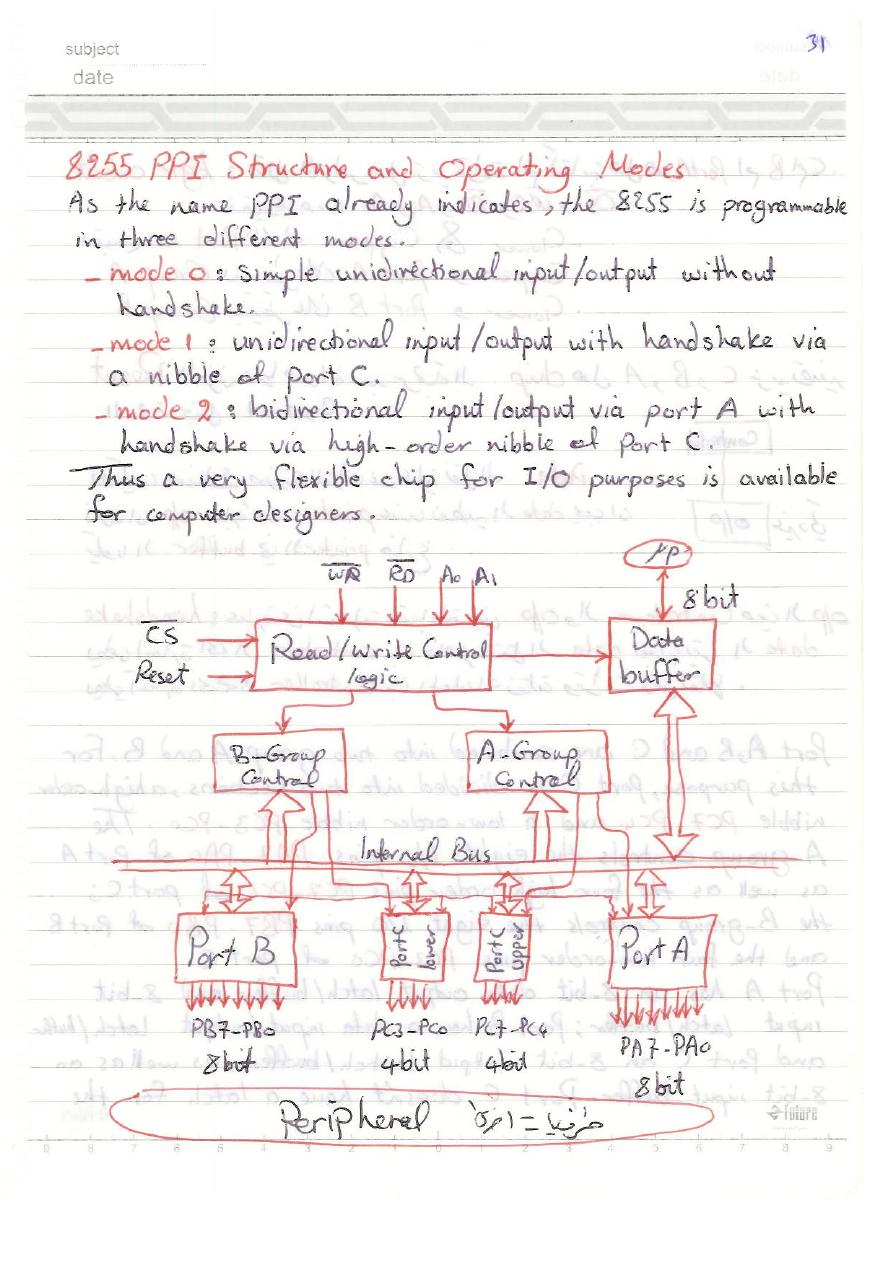 31
subject
date
8255 PPI Structure and Operating Modes
As the name PPI already indicates, the 8255 is programmable
in three different modes.
- mode 0 : simple unidirectional input/output without
handshake.
- mode 1 : unidirectional input/output with handshake via
a nibble of port C.
- mode 2 : bidirectional input/output via port A with
handshake via high-order nibble of port C.
Thus a very flexible chip for I/O purposes is available
for computer designers.
μP
WR RD A0 A1
8 bit
CS
Reset
Read/Write Control
logic
Data
buffer
B-Group
Control
A-Group
Control
Internal Bus
Port B
Port C
lower
Port C
upper
Port A
PB7-PB0
8bit
PC3-PC0
4bit
PC7-PC4
4bit
PA7-PA0
8bit
Peripheral = طرفيا
Future
9 8 7 6 5 4 3 2 1 0 1 2 3 4 5 6 7 8 9